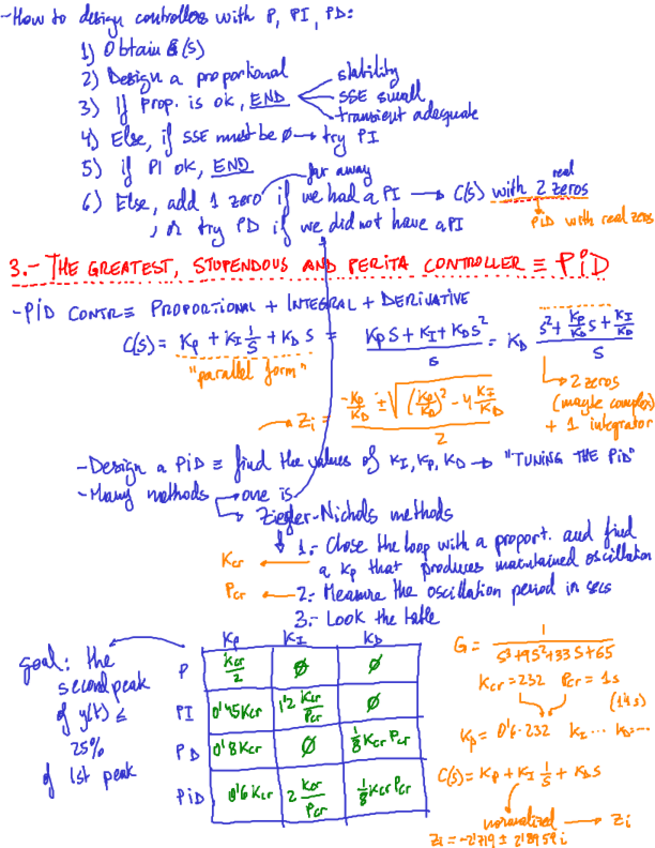 -How to design controllers with P, PI, PD:
1) Obtain G(s)
2) Design a proportional
3) If Prop. is ok, END
stability
SSE small
transient adequate
4) Else, if SSE must be ∅ → try PI
5) if PI ok, END
far away
6) Else, add 1 zero if we had a PI → C(s) with 2 real zeros
, or try PD if we did not have a PI
PiD with real zeros
3.- THE GREATEST, STUPENDOUS AND PERITA CONTROLLER ≡ PiD
-PiD CONTR ≡ PROPORTIONAL + INTEGRAL + DERIVATIVE
C(s) = Kp + KI 1/s + KD s = (Kp s + KI + KD s²)/s = KD (s² + Kp/KD s + KI/KD)/s
"parallel form"
Zi = (-Kp/KD ± √((Kp/KD)² - 4 KI/KD))/2
→ 2 zeros
(maybe complex)
+ 1 integrator
-Design a PiD ≡ find the values of KI, Kp, KD → "TUNING THE PiD"
-Many methods → one is
→ Ziegler-Nichols methods
1.- Close the loop with a proport. and find
Kcr ← a Kp that produces maintained oscillation
Pcr ← 2.- Measure the oscillation period in secs
3.- Look the table
goal: the
second peak
of y(t) ≤
25%
of 1st peak
Kp KI KD
P Kcr/2 ∅ ∅
PI 0'45Kcr 1'2 Kcr/Pcr ∅
PD 0'8Kcr ∅ 1/8 Kcr Pcr
PiD 0'6Kcr 2 Kcr/Pcr 1/8 Kcr Pcr
G = 1/(s³+9s²+33s+65)
Kcr=232 Pcr=1s
(1'1s)
Kp = 0'6·232 KI ... KD=...
C(s) = Kp + KI 1/s + KD s
normalized → Zi
Zi = -2'719 ± 2'8959i